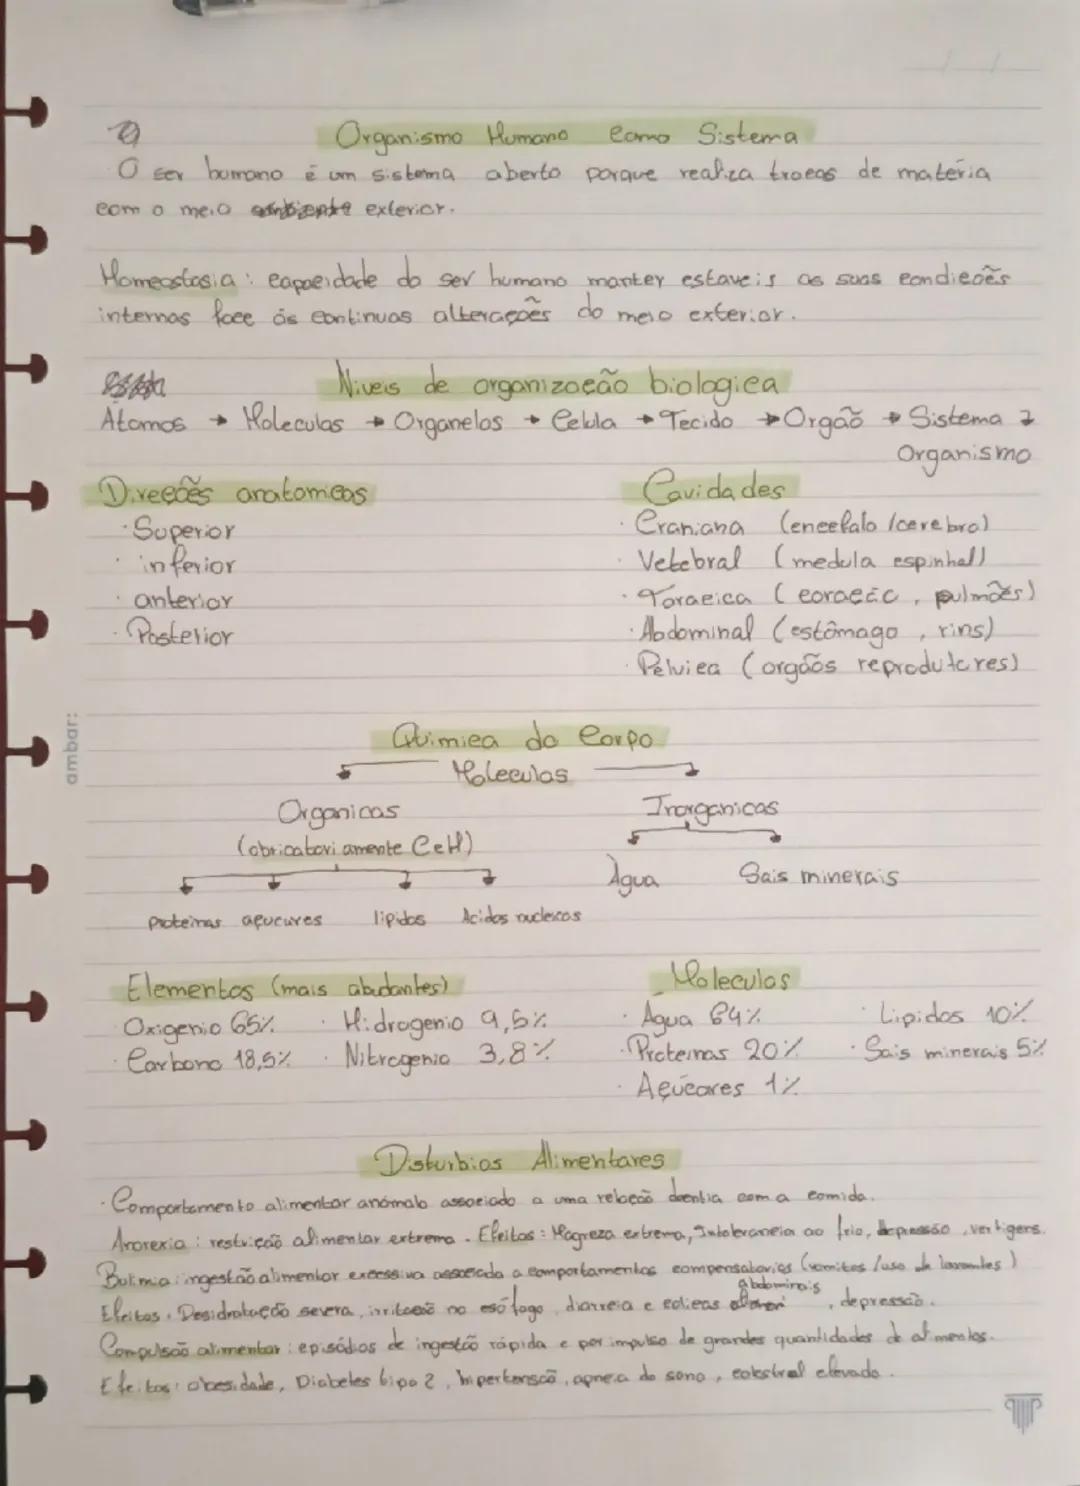 Organismo Humano como Sistema
O ser humano é um sistema aberto porque realiza trocas de matéria
com o meio ambiente exterior.
Homeostasia : capacidade do ser humano manter estaveis as suas condições
internas face ás continuas alterações do meio exterior.
Niveis de organização biologica
Atomos → Moleculas → Organelos → Celula → Tecido → Orgão → Sistema →
Organismo
Direções anatomicas
· Superior
· inferior
· anterior
· Posterior
Cavidades
· Craniana (encefalo /cerebro)
· Vetebral (medula espinhal)
· Toracica (coração, pulmões)
· Abdominal (estômago, rins)
· Pélvica (orgãos reprodutores)
ambar:
Quimica do Corpo
Moleculas
Organicas
(obricatoriamente CeH)
proteinas açucures lipidos Acidos nucleicos
Inorganicas
Água Sais minerais
Elementos (mais abudantes)
· Oxigenio 65% · Hidrogenio 9,5%
· Carbono 18,5% · Nitrogenio 3,8%
Moleculas
· Agua 64% · Lipidos 10%
· Proteinas 20% · Sais minerais 5%
· Açúcares 1%
Disturbios Alimentares
· Comportamento alimentar anómalo associado a uma relação doentia com a comida.
Anorexia : restrição alimentar extrema. Efeitos : Magreza extrema, Intolerancia ao frio, depressão, vertigens.
Bulimia : ingestão alimentar excessiva associada a comportamentos compensatorios (vomitos /uso de laxantes)
abdominais
Efeitos : Desidratação severa, irritação no esófago, diarreia e colicas , depressão.
Compulsão alimentar : episódios de ingestão rápida e por impulso de grandes quantidades de alimentos.
Efeitos : obesidade, Diabetes tipo 2, hipertensão, apneia do sono, colestral elevado.